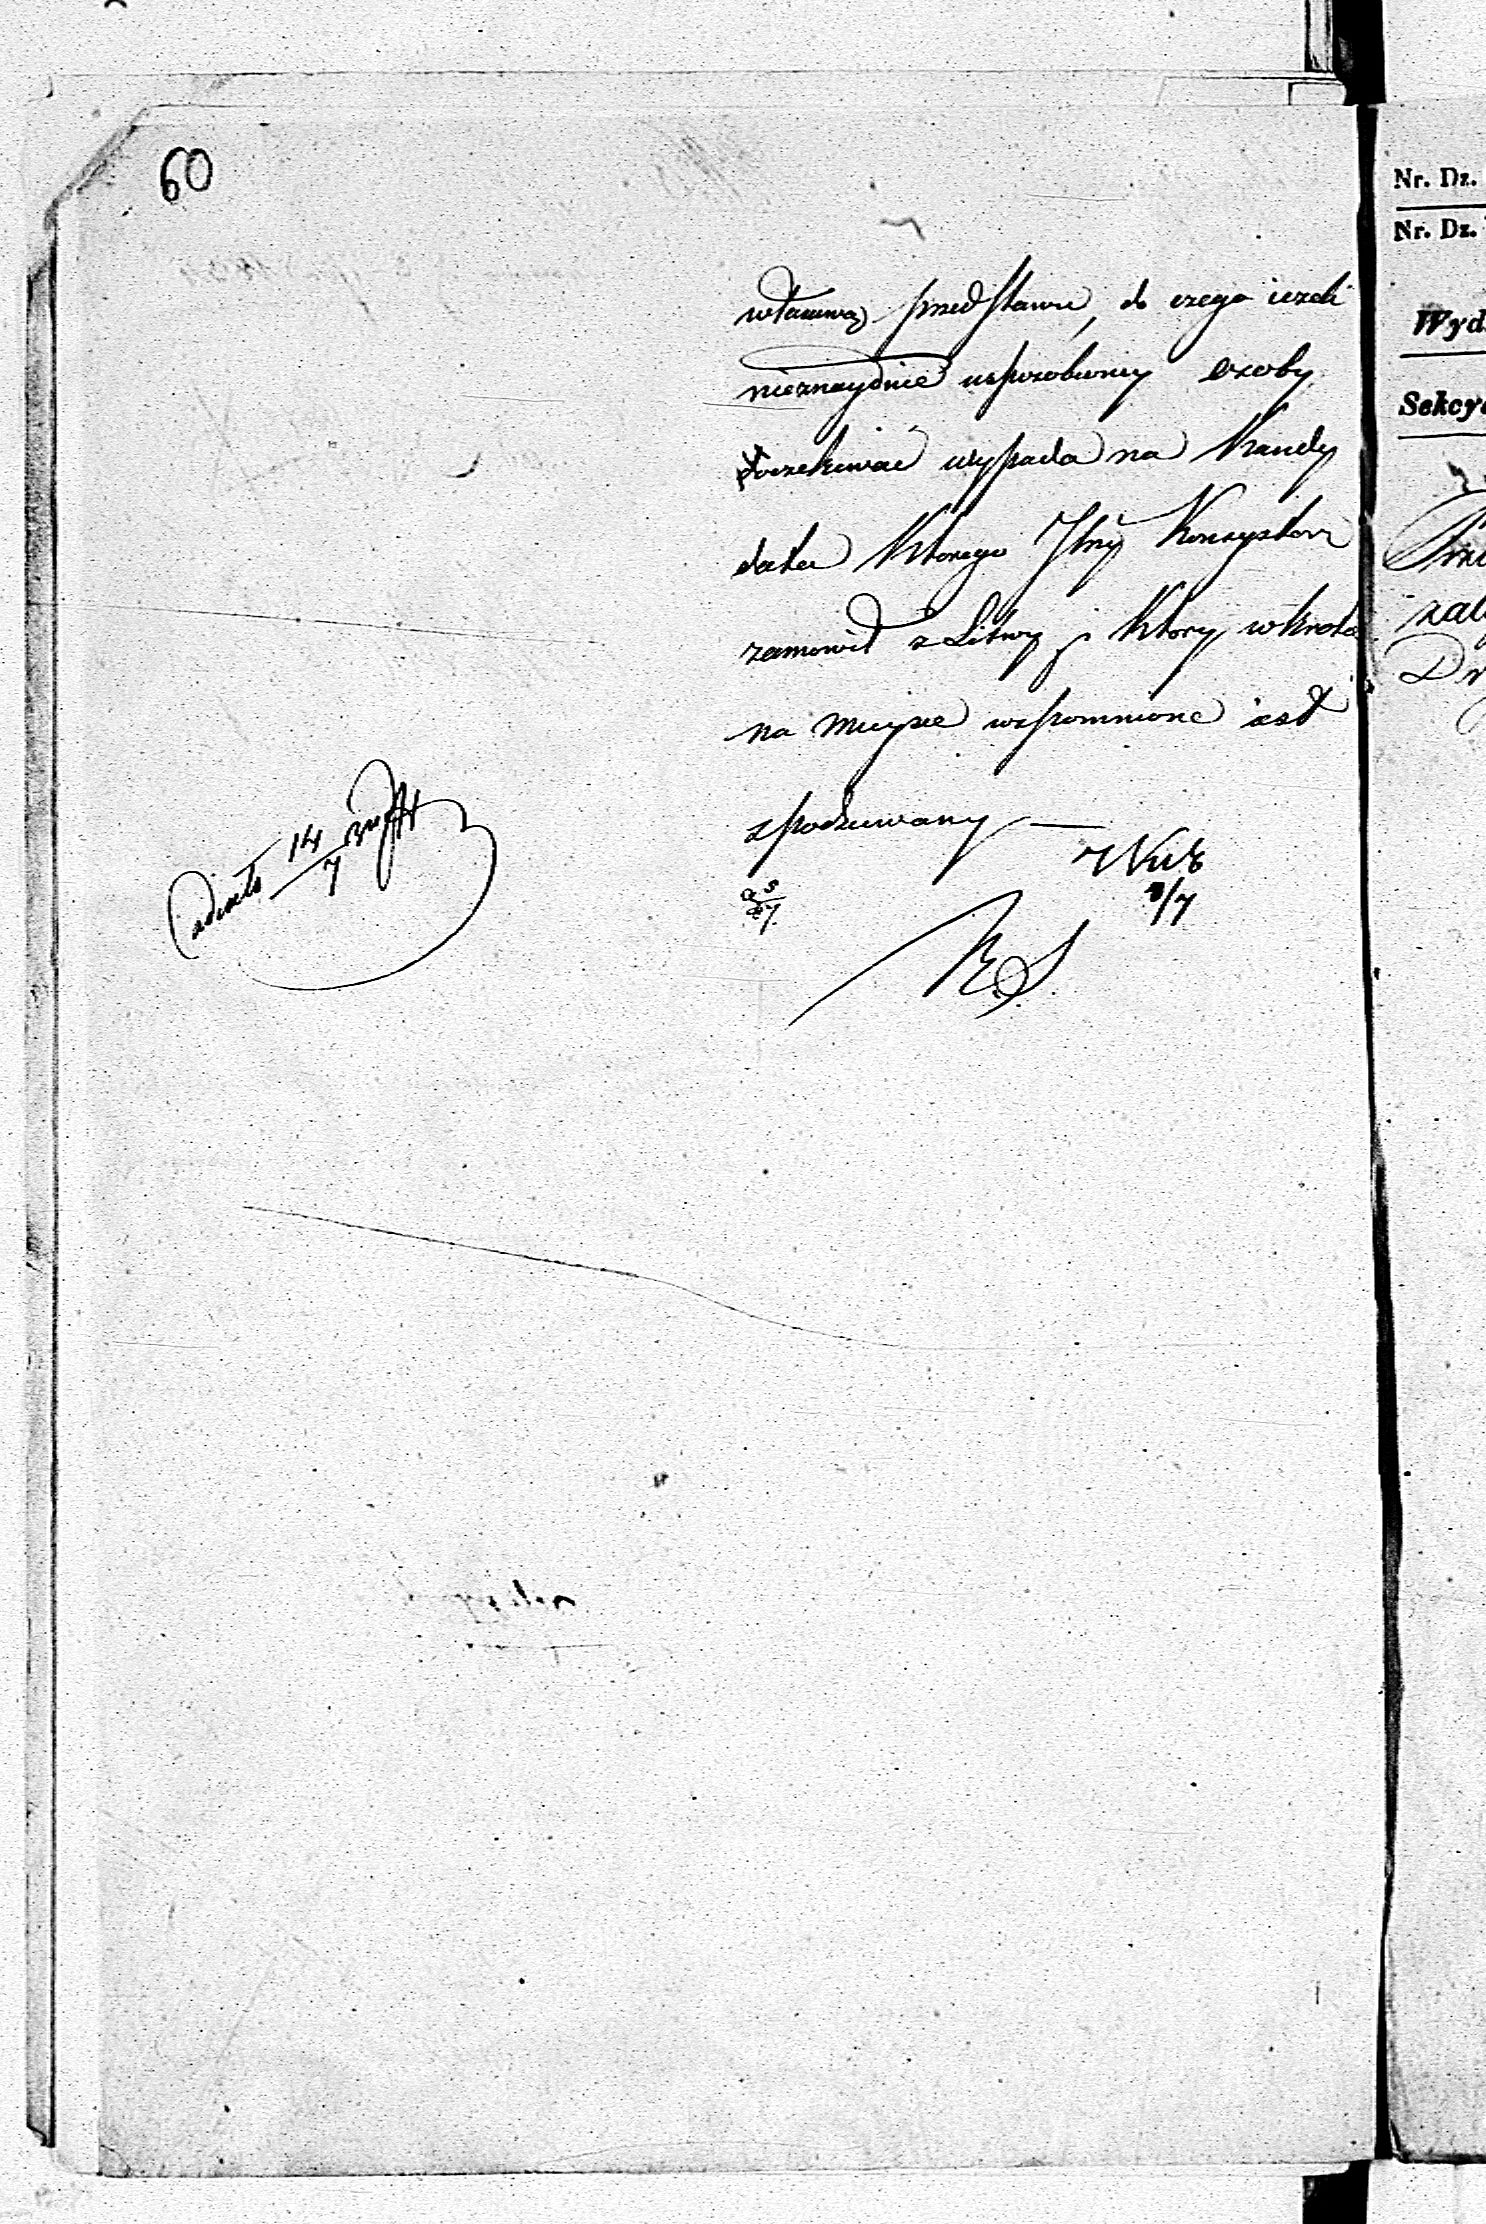 60
własciwą przedstawił, do czego ieżeli
nieznaydzie usposobioney osoby
oczekiwać wypada na Kandy
data którego Konsystorz
zamowił z Litwy i który wkrotce
na mieysce wspomnione iest
spodziewany —
14/7
3/7
Nr. Dz.
Nr. Dz.
Wyd
Sekcy